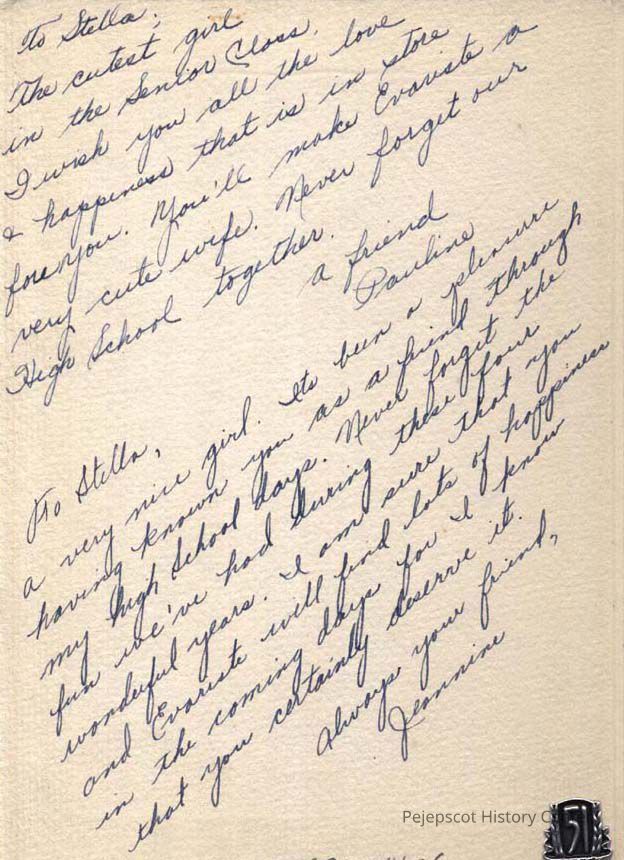 To Stella:
The cutest girl
in the Senior Class.
I wish you all the love
& happiness that is in store
for you. You'll make Evariste a
very cute wife. Never forget our
High School together.
a friend
Pauline
To Stella,
a very nice girl. Its been a pleasure
having known you as a friend through
my high School days. Never forget the
fun we've had during these four
wonderful years. I am sure that you
and Evariste will find lots of happiness
in the coming days for I know
that you certainly deserve it.
Always your friend,
Jeannine
Pejepscot History
51